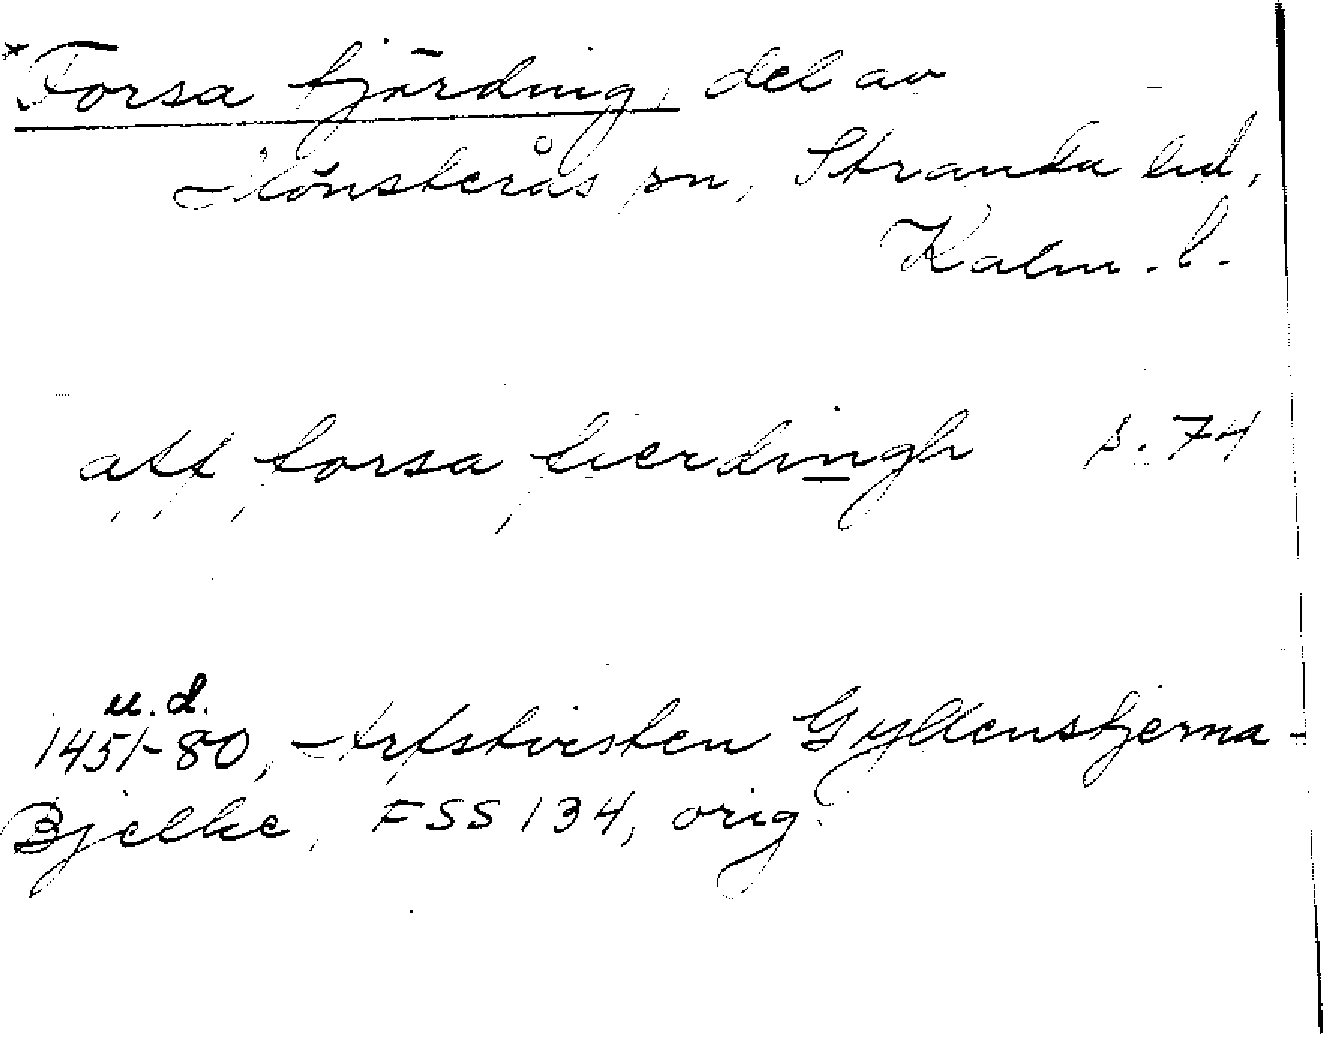 *Forsa fjärding, del av
Mönsterås sn, Stranda hd,
Kalm. l.
aff forsa fierdingh s. 74
u. d.
1451-80, Arfstvisten Gyldenstjerna-
Bjelke, FSS 134, orig.